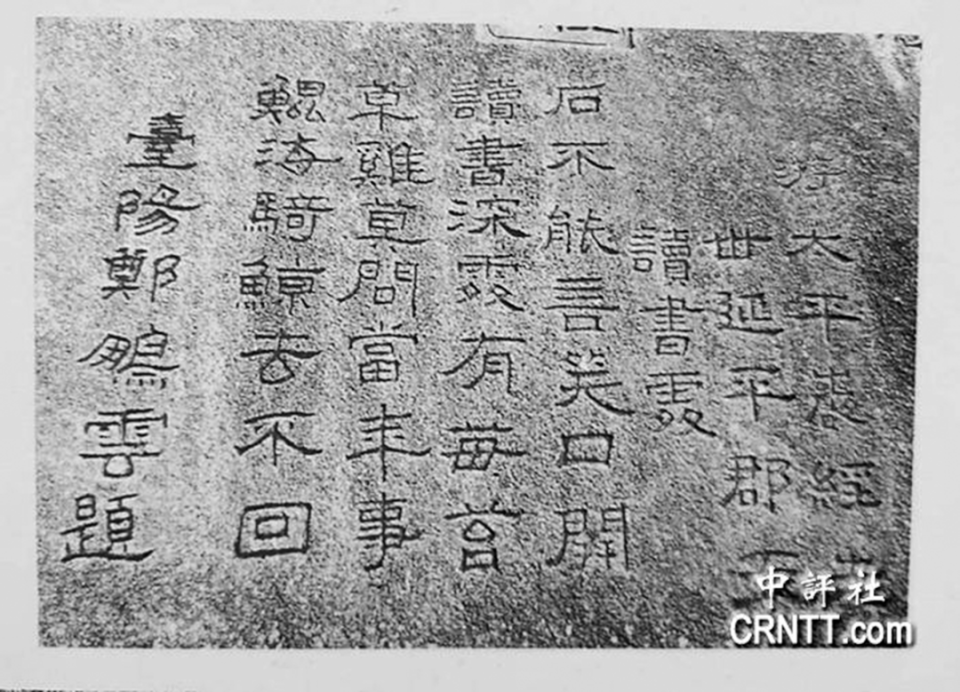 游太平處經先
世延平郡王
讀書處
石不能言笑口開
讀書深處有苺苔
草雞莫問當年事
鯤海騎鯨去不回
臺陽鄭鵬雲題
中評社
CRNTT.com